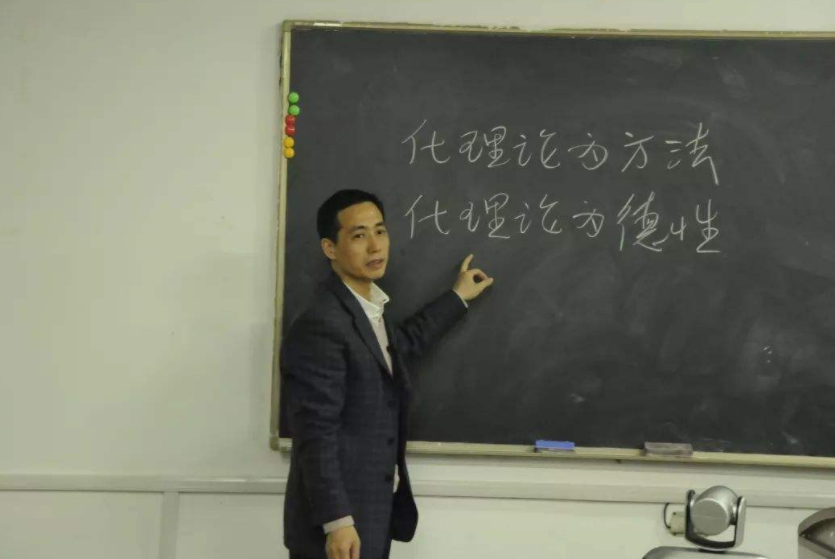 化理论为方法
化理论为德性